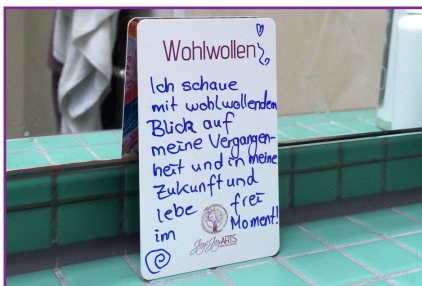 Wohlwollen
Ich schaue
mit wohlwollenden
Blick auf
meine Vergangen-
heit und in meine
Zukunft und
lebe frei
im Moment!
JoyJoyARTS